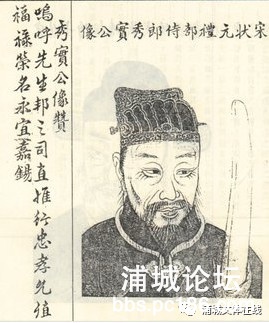 宋狀元禮部侍郎秀實公像
秀實公像贊
嗚呼先生邦之司直推行忠孝允值
福祿榮名永宜嘉錫
浦城论坛
浦城文体在线